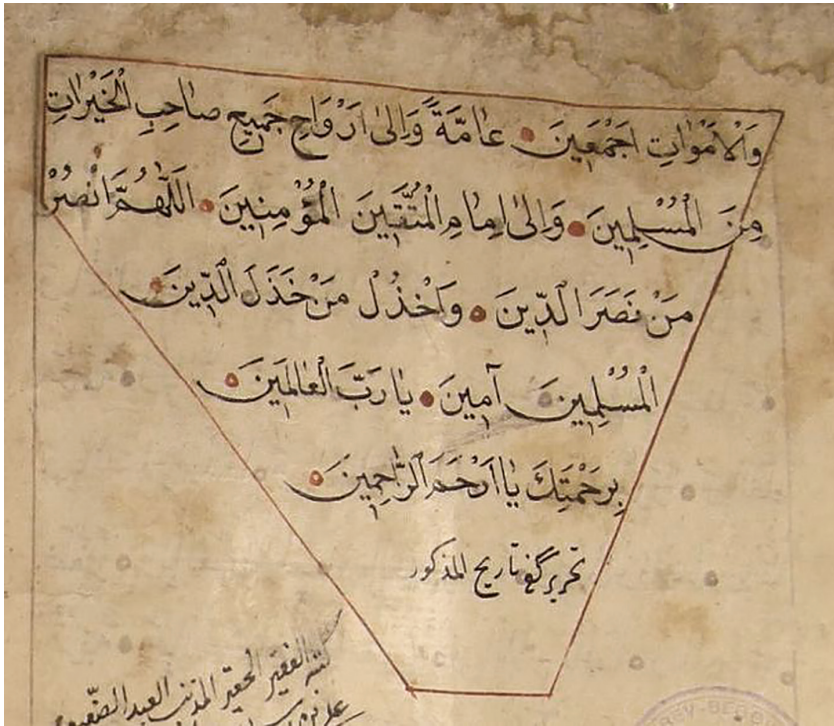 وَالْاَمْوَاتِ اَجْمَعِينَ عَامَّةً وَاِلىٰ اَرْوَاحِ جَمِيعِ صَاحِبِ الْخَيْرَاتِ
مِنَ الْمُسْلِمِينَ وَاِلىٰ اِمَامِ الْمُتَّقِينَ الْمُؤْمِنِينَ اَللّٰهُمَّ انْصُرْ
مَنْ نَصَرَ الدِّينَ وَاخْذُلْ مَنْ خَذَلَ الدِّينَ
الْمُسْلِمِينَ آمِينَ يَا رَبَّ الْعَالَمِينَ
بِرَحْمَتِكَ يَا اَرْحَمَ الرَّاحِمِينَ
تحرير تاريخ المذكور
كتبه الفقير الحقير المذنب العبد الضعيف